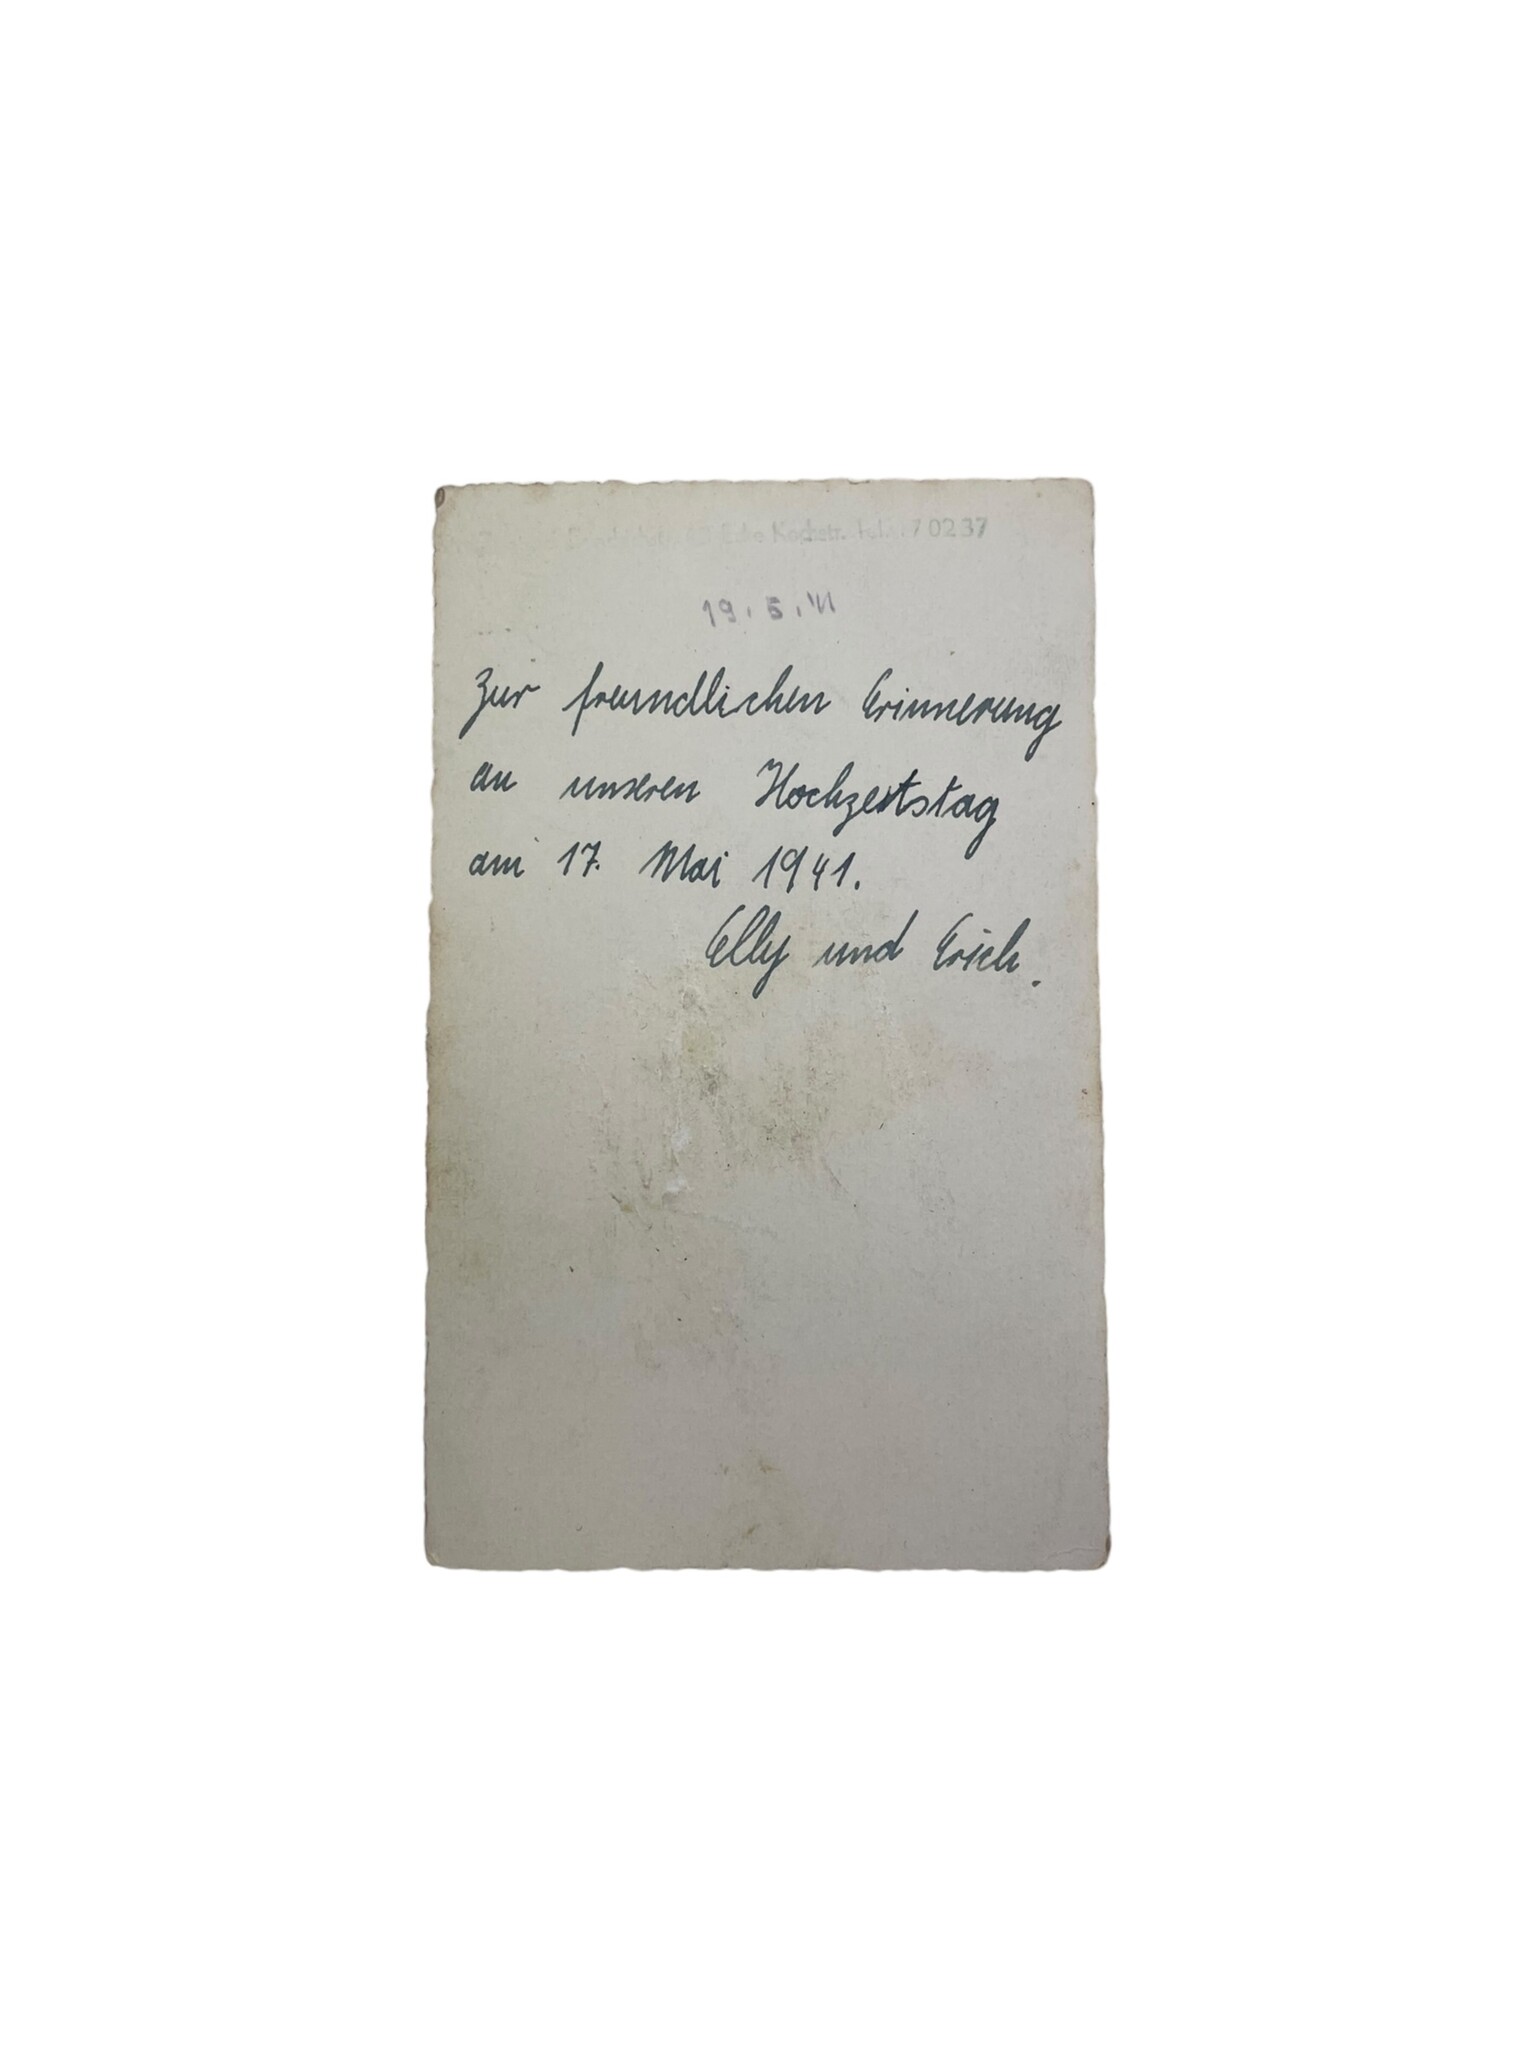 Ecke Kochstr. Tel. 17 02 37
19. 5. '41
Zur freundlichen Erinnerung
an unseren Hochzeitstag
am 17. Mai 1941.
Elly und Erich.